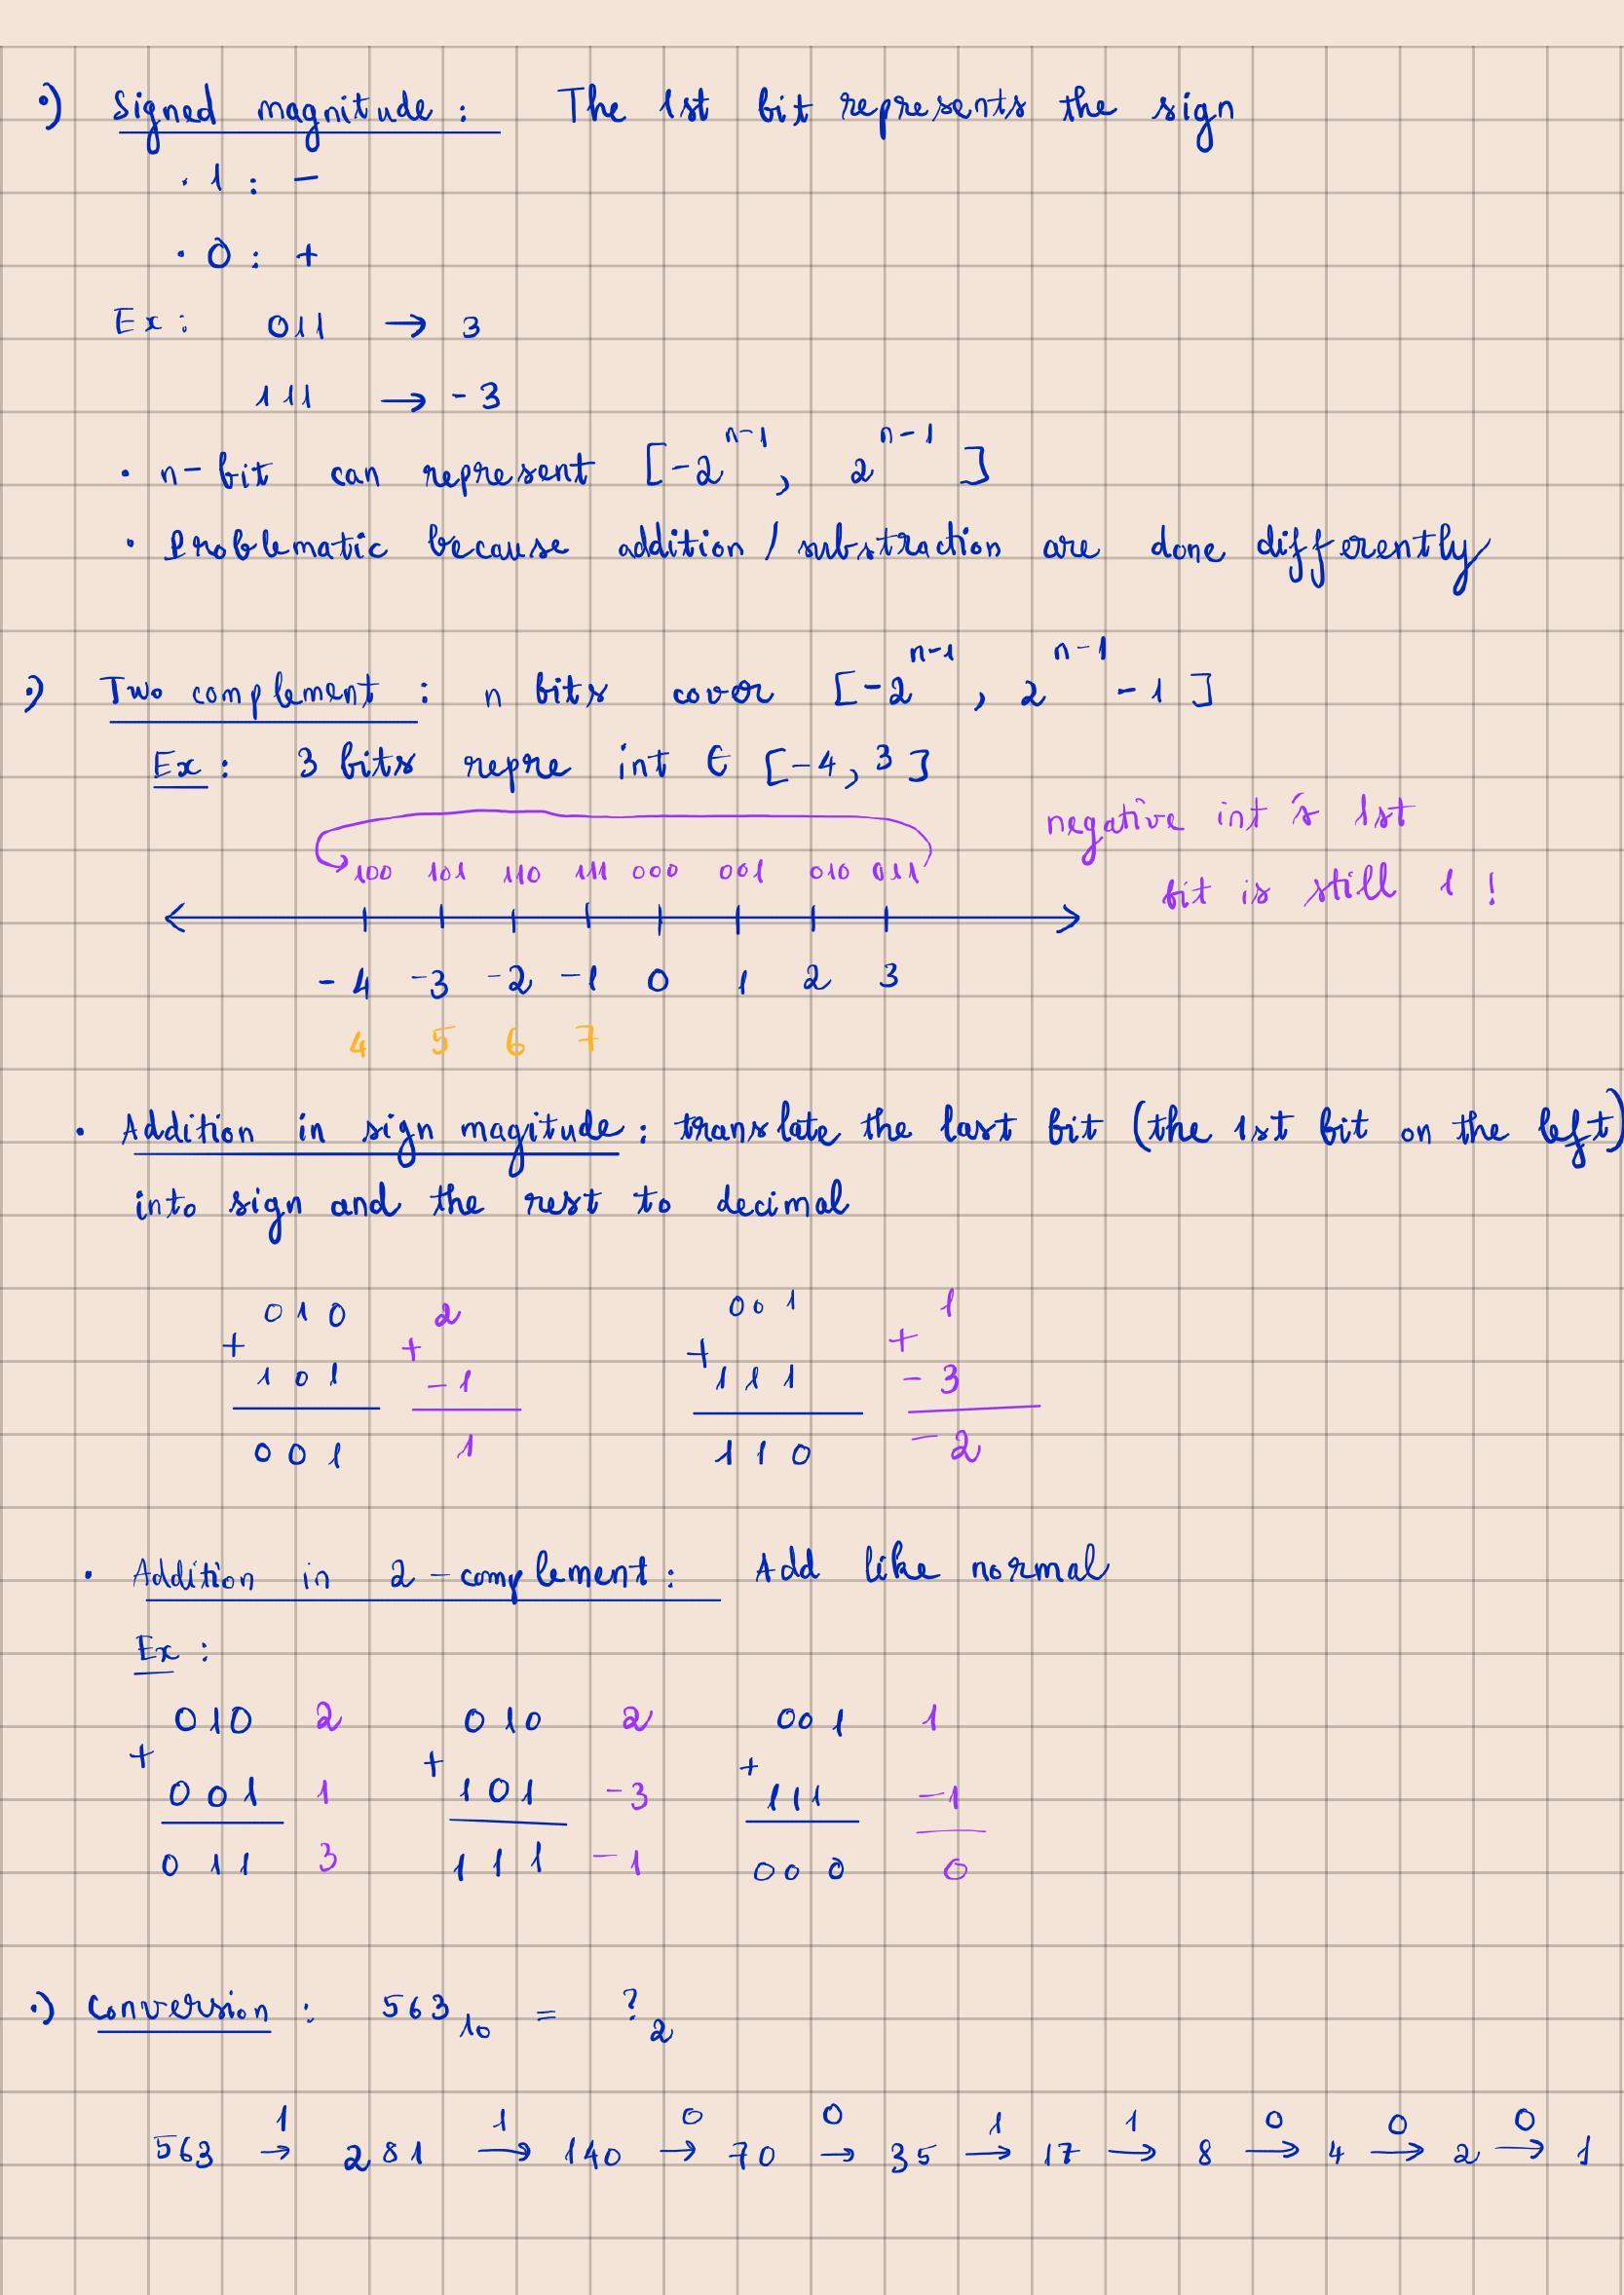 •) Signed magnitude : The 1st bit represents the sign
· 1 : −
· 0 : +
Ex : 011 → 3
111 → - 3
· n - bit can represent [-2^{n-1}, 2^{n-1}]
· Problematic because addition / substraction are done differently
•) Two complement : n bits cover [-2^{n-1}, 2^{n-1} - 1]
Ex : 3 bits repre int ∈ [-4, 3]
negative int's 1st
bit is still 1 !
100 101 110 111 000 001 010 011
-4 -3 -2 -1 0 1 2 3
4 5 6 7
· Addition in sign magitude : translate the last bit (the 1st bit on the left)
into sign and the rest to decimal
010 2 001 1
+ + + +
101 -1 111 -3
001 1 110 -2
· Addition in 2 - complement : Add like normal
Ex :
010 2 010 2 001 1
+ + +
001 1 101 -3 111 -1
011 3 111 -1 000 0
•) Conversion : 563₁₀ = ?₂
1 1 0 0 1 1 0 0 0
563 → 281 → 140 → 70 → 35 → 17 → 8 → 4 → 2 → 1